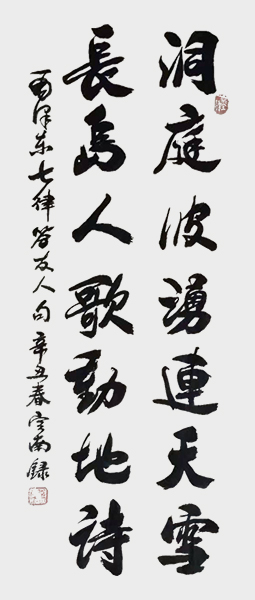 洞庭波湧連天雪
長島人歌動地詩
毛泽东七律答友人句 辛丑春 南録